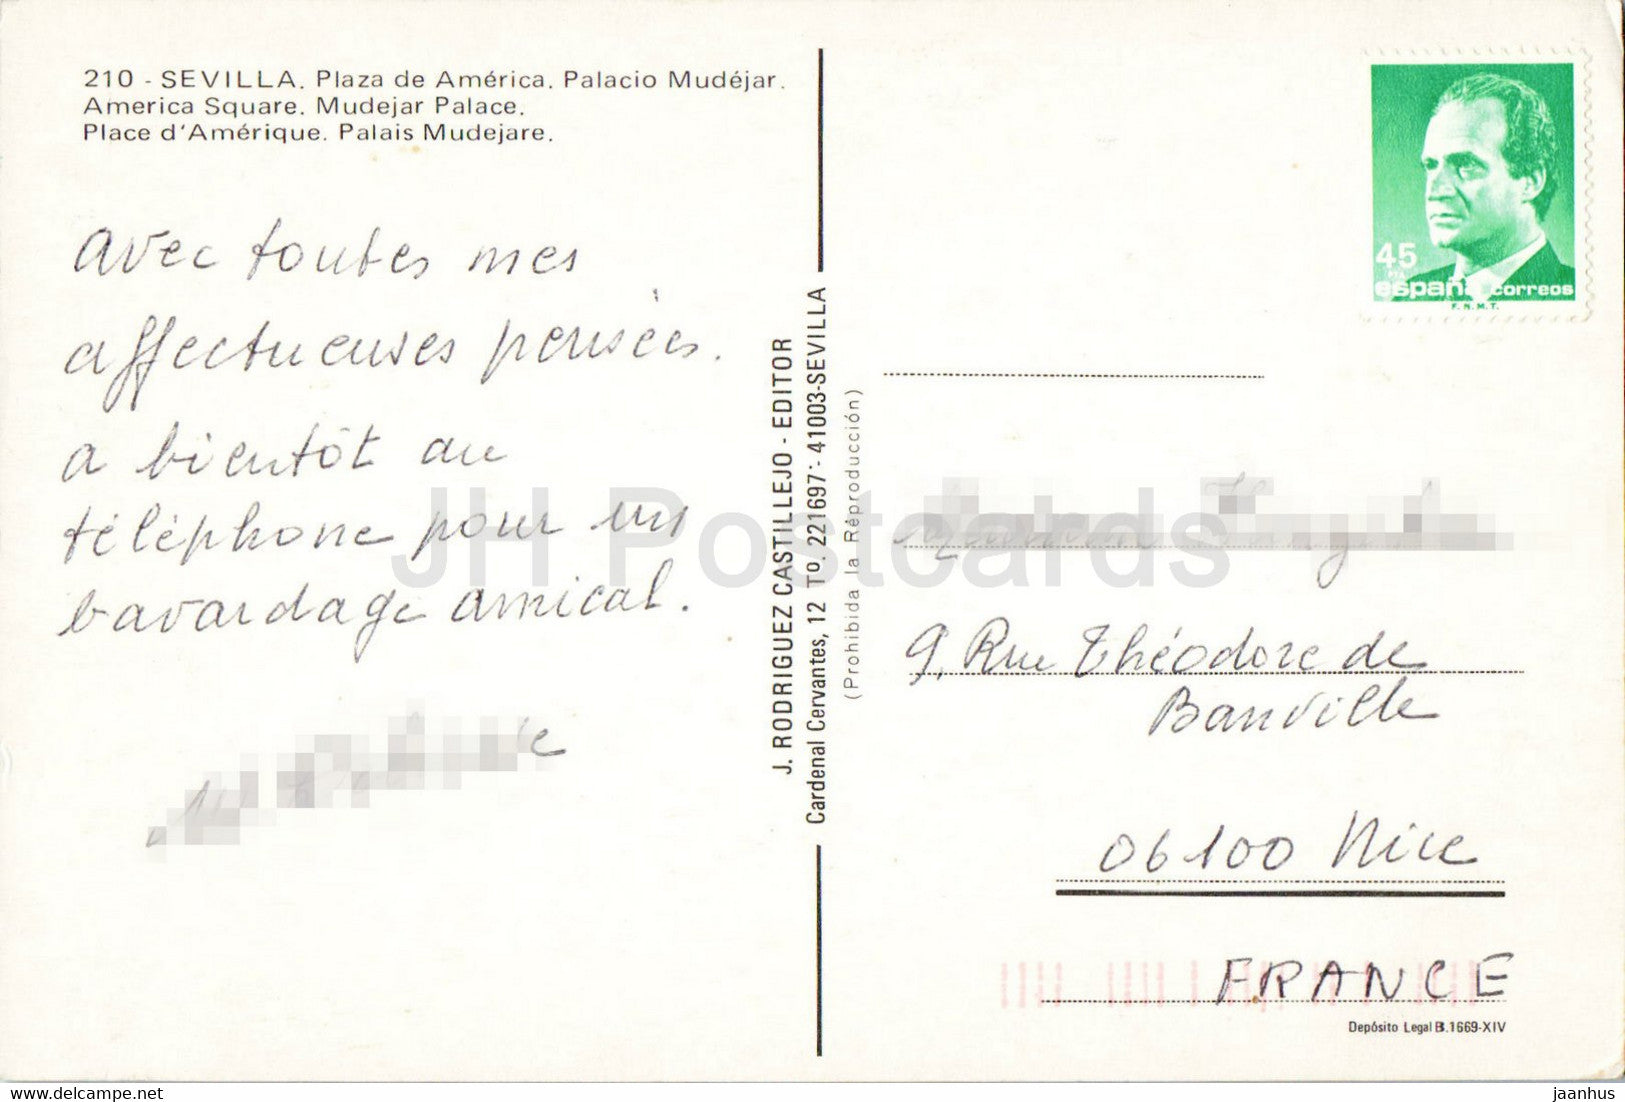 210 - SEVILLA. Plaza de América. Palacio Mudéjar.
America Square. Mudejar Palace.
Place d'Amérique. Palais Mudejare.
avec toutes mes
affectueuses pensées.
a bientôt au
téléphone pour un
bavardage amical.
J. RODRIGUEZ CASTILLEJO - EDITOR
Cardenal Cervantes, 12 To. 221697 - 41003-SEVILLA
(Prohibida la Réproducción)
45
PTA
españa correos
F.N.M.T.
9, Rue Théodore de
Banville
06100 Nice
FRANCE
Depósito Legal B.1669-XIV
JH Postcards
hippostcard.com
jaanhus